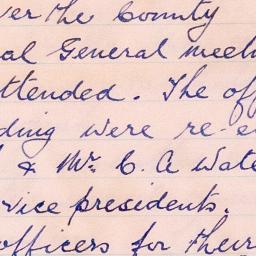 ver the County
al General meet
ttended. The off
ding were re-e
& Mr. C. A Wate
vice presidents.
officers for their